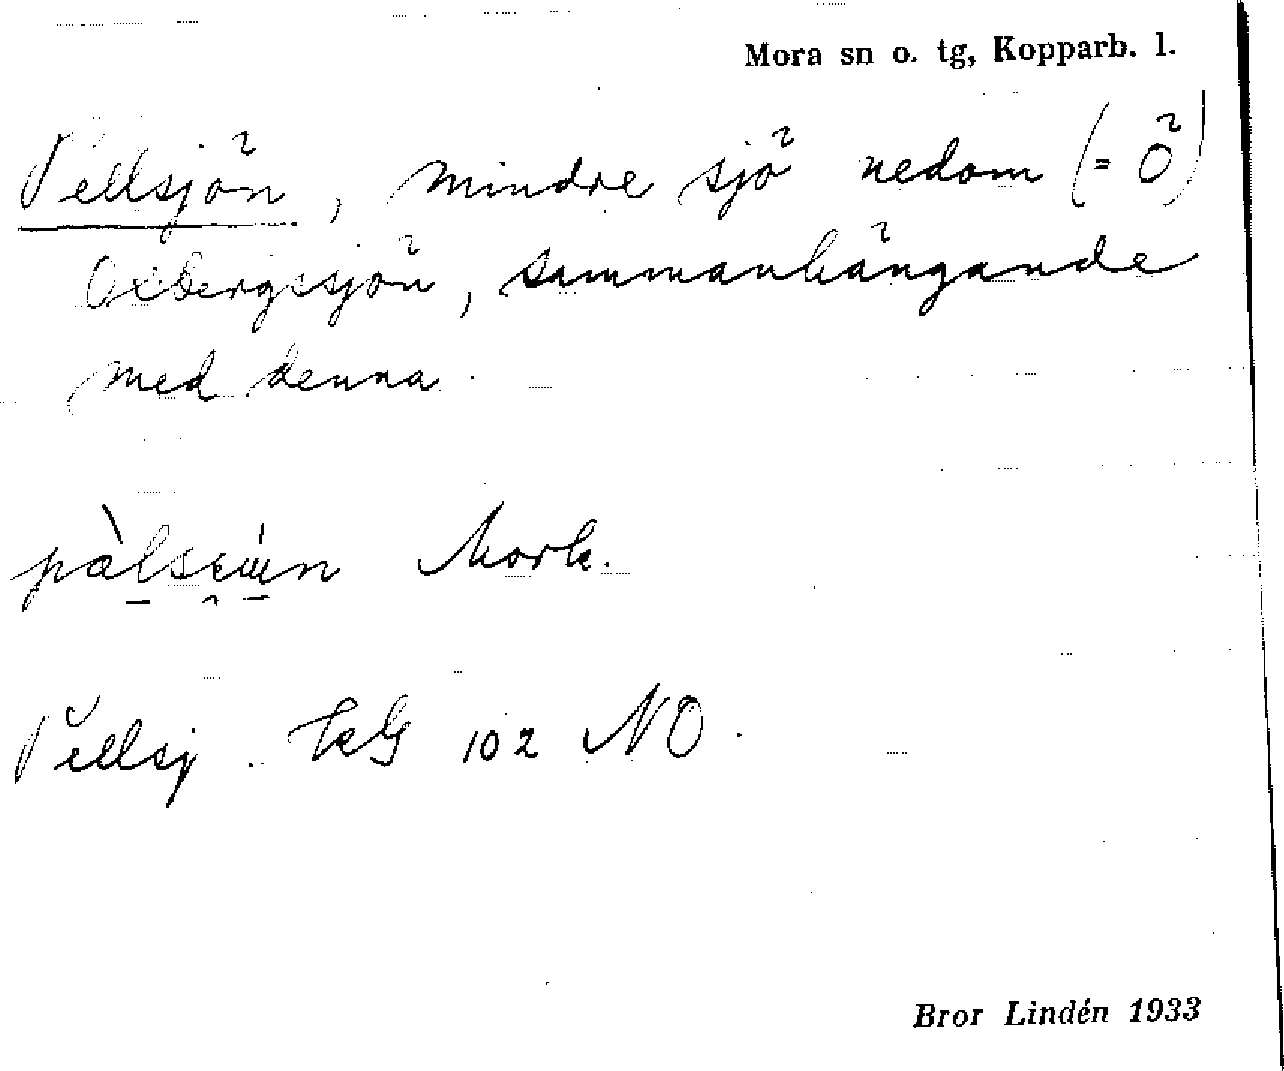 Mora sn o. tg, Kopparb. l.
Pellsjön, mindre sjö nedom (= Ö)
Oxbergssjön, sammanhängande
med denna.
Mork.
Pellsj. 102 NO.
Bror Lindén 1933